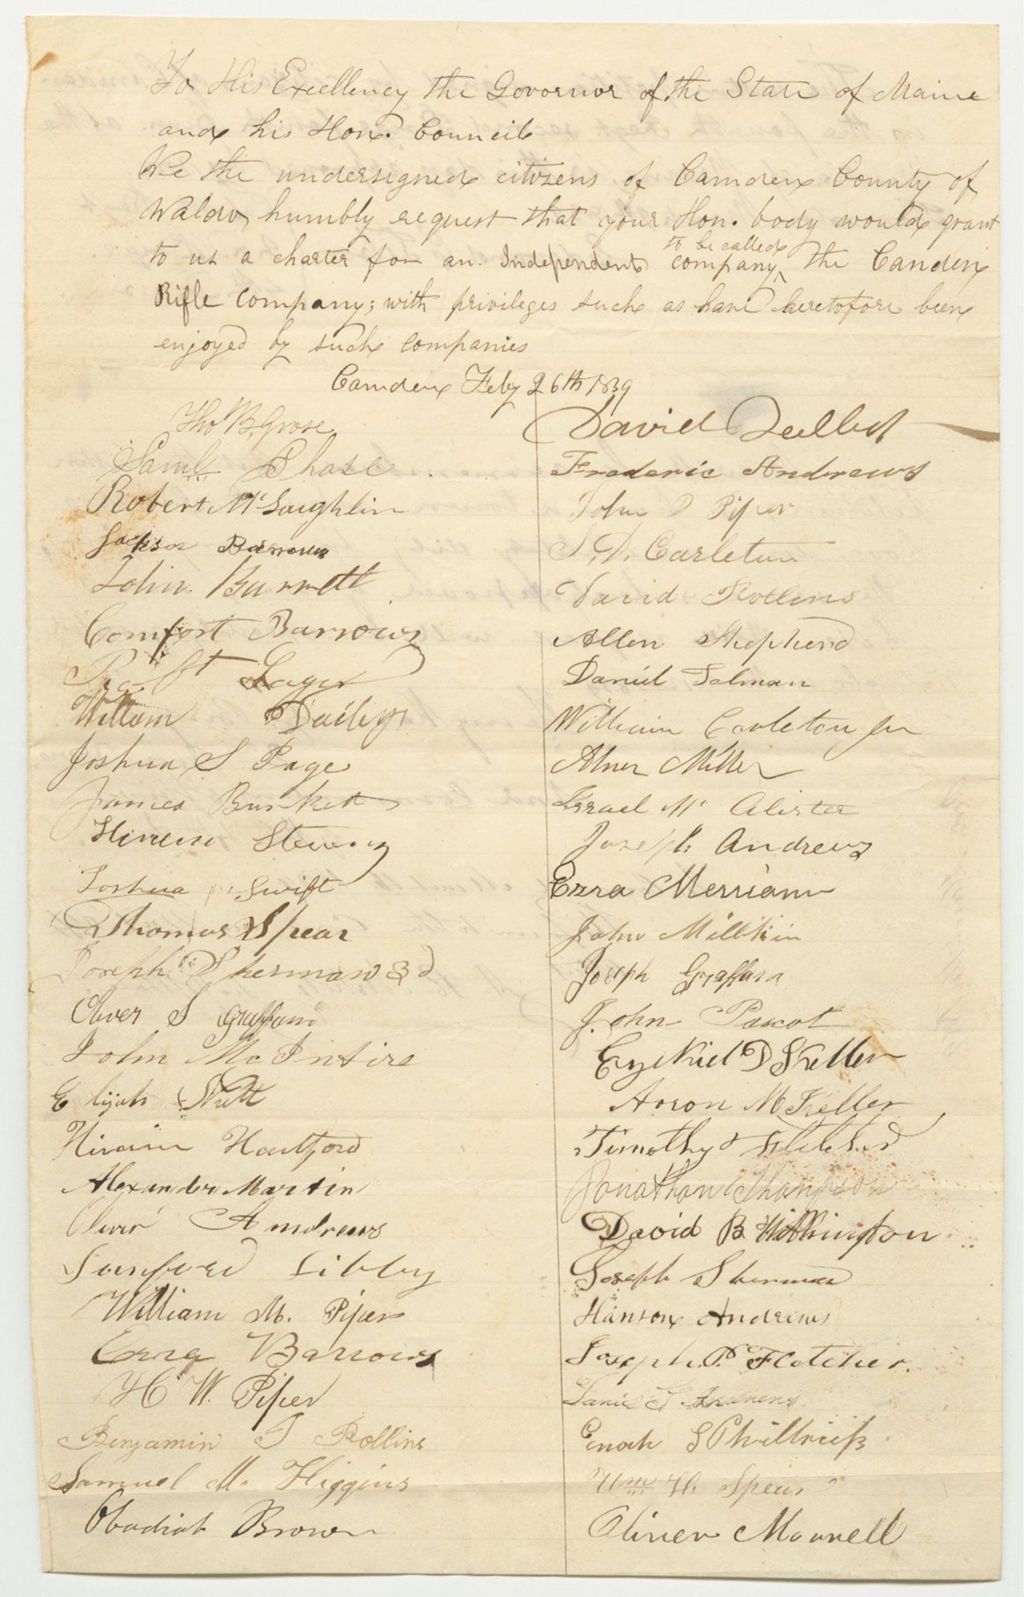 To His Excellency the Governor of the State of Maine
and his Hon. Council
We the undersigned citizens of Camden County of
Waldo, humbly request that your Hon. body would grant
to us a charter for an Independent company, to be called the Camden
Rifle Company; with privileges such as have heretofore been
enjoyed by such companies
Camden Feby 26th 1839
Tho B. Grose
Saml Chase
Robert McLaughlin
Barrows
John Barrett
Comfort Barrows
William Daily
Joshua S Page
James Burkett
Stevens
Joshua Swift
Thomas Spear
Joseph Sherman 3d
Oliver S Graffam
John McIntire
Elijah Nutt
Hiram Hartford
Alexander Martin
Oliver Andrews
Sanford Libby
William M. Piper
Ezra Barrows
H W. Piper
Benjamin F Rollins
Samuel M. Higgins
Obadiah Brown
David
Frederic Andrews
John D Piper
Carleton
David Rollins
Allen Shepherd
Daniel
William Carleton Jr
Abner Miller
Israel Mc Alister
Joseph Andrews
Ezra Merriam
John Millikin
Joseph Graffam
John Pascot
Ezekiel D Keller
Aaron M Keller
Timothy
Jonathan Thompson
David B Withington
Joseph Sherman
Hanson Andrews
Joseph P. Fletcher.
Andrews
Enoch S Philbrick
Wm H. Spear
Oliver Maxwell